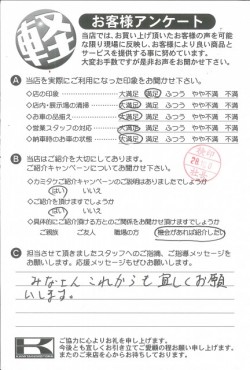 軽
お客様アンケート
当店では、お買い上げ頂いたお客様の声を可能
な限り現場に反映し、お客様により良い商品と
サービスを提供する事に努めています。
大変お手数ですが是非お声をお聞かせ下さい。
A 当店を実際にご利用になった印象をお聞かせ下さい。
◇店の印象 大満足 満足 ふつう やや不満 不満
◇店内・展示場の清掃 大満足 満足 ふつう やや不満 不満
◇お車の品揃え 大満足 満足 ふつう やや不満 不満
◇営業スタッフの対応 大満足 満足 ふつう やや不満 不満
◇納車時のお車の状態 大満足 満足 ふつう やや不満 不満
B 当店はご紹介を大切にしております。
ご紹介キャンペーンについてお聞かせ下さい。
◇カミタケご紹介キャンペーンのご説明はありましたでしょうか
はい いいえ
◇ご紹介を頂けますでしょうか
はい いいえ
◇具体的にご紹介頂ける方とのご関係をお聞かせ頂けますでしょうか
ご親族 ご友人 職場の方 機会があれば紹介したい
C 担当させて頂きましたスタッフへのご指摘、ご指導メッセージを
お願いします。応援メッセージもぜひお願いします。
みなさん これからも 宜しくお願
いします。
ご協力に心よりお礼を申し上げます。
今後とも宜しくお引き立てご愛顧の程お願い申し上げます。
またのご来店を心からお待ちしております。